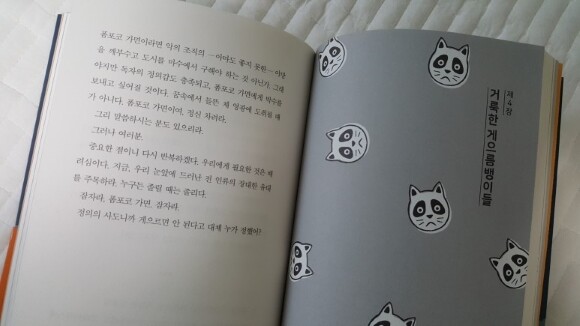 폼포코 가면이라면 악의 조직의 ─이마도 좋지 못한─ 야망
을 깨부수고 도시를 마수에서 구해야 하는 것 아닌가. 그래
야지만 독자의 정의감도 충족되고, 폼포코 가면에게 박수를
보내고 싶어질 것이다. 꿈속에서 들은 채 영광에 도취될 때
가 아니다. 폼포코 가면이여, 정신 차려라.
그리 말씀하시는 분도 있으리라.
그러나 여러분.
중요한 점이니 다시 반복하겠다. 우리에게 필요한 것은 배
려심이다. 지금, 우리 눈앞에 드러난 전 인류의 장대한 유대
를 주목하라. 누구든 졸릴 때는 졸리다.
잘자라, 폼포코 가면. 잘자라.
정의의 사도니까 게으르면 안 된다고 대체 누가 정했어?
제4장
거룩한 게으름뱅이들